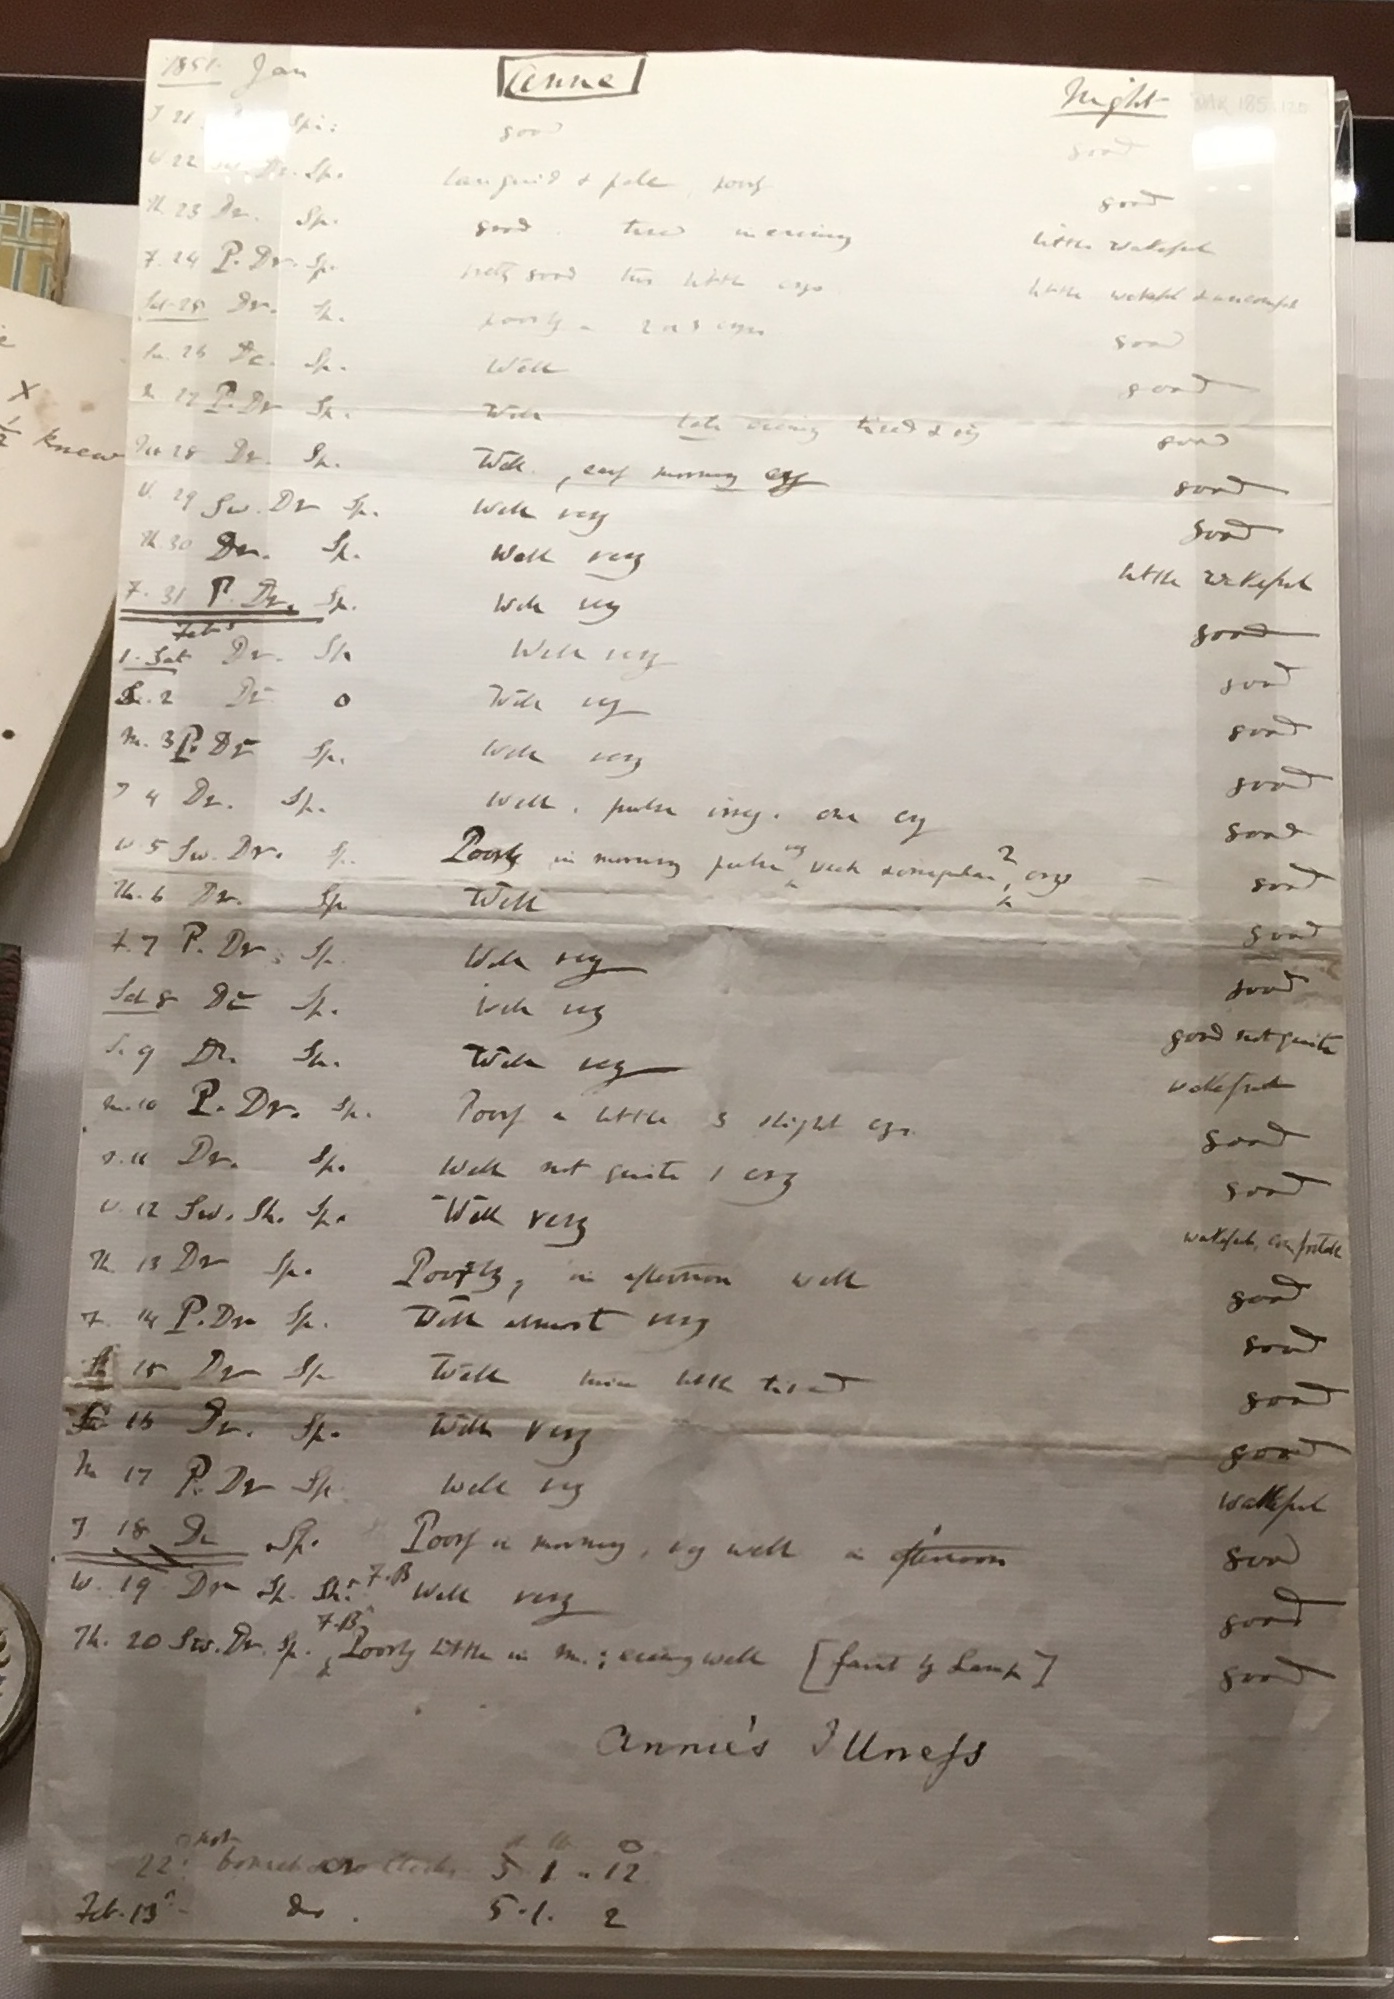 1851 Jan Anne Night DAR 185.120
T 21 Sp: good good
W 22 Sw. Dr. Sp. languid & pale, poorly good
Th. 23 Dr. Sp. good. tired in evening little wakeful
F. 24 P. Dr. Sp. pretty good this little crys little wakeful & uncomf
Sat-25 Dr. Sp. poorly a 2 or 3 crys good
Su. 26 Dr. Sp. Well good
M 27 P. Dr Sp. Well late evening tired & cry good
Tu 28 Dr. Sp. Well, early morning cry good
W. 29 Sw. Dr Sp. Well very good
Th. 30 Dr. Sp. Well very little wakeful
F. 31 P. Dr. Sp. Well very good
Feb
1. Sat Dr. Sp Well very good
S. 2 Dr 0 Well very good
M. 3 P. Dr Sp. Well very good
T 4 Dr. Sp. Well. pulse irreg. one cry good
W 5 Sw. Dr. Sp. Poorly in morning pulse very weak & irregular, 2 crys good
Th. 6 Dr. Sp Well good
F. 7 P. Dr. Sp. Well very good
Sat 8 Dr Sp. Well very good not quite
S. 9 Dr. Sp. Well very wakeful
M. 10 P. Dr. Sp. Poorly a little 3 slight crys. good
T. 11 Dr. Sp. Well not quite 1 cry good
W. 12 Sw. Sh. Sp. Well very wakeful, comfortable
Th 13 Dr Sp. Poorly, in afternoon well good
F. 14 P. Dr Sp. Well almost very good
S 15 Dr Sp Well little tired good
Su 16 Dr. Sp. Well very good
M 17 P. Dr Sp Well very wakeful
T. 18 Dr Sp. Poorly in morning, very well in afternoon good
W. 19 Dr Sp. Sh. F.B Well very good
Th. 20 Sw. Dr. Sp. F.B Poorly little in m.; evening well [faint by Lamp] good
Annie's Illness
22: 5 1 .. 12
Feb. 13 do. 5. 1. 2
X
½ knew